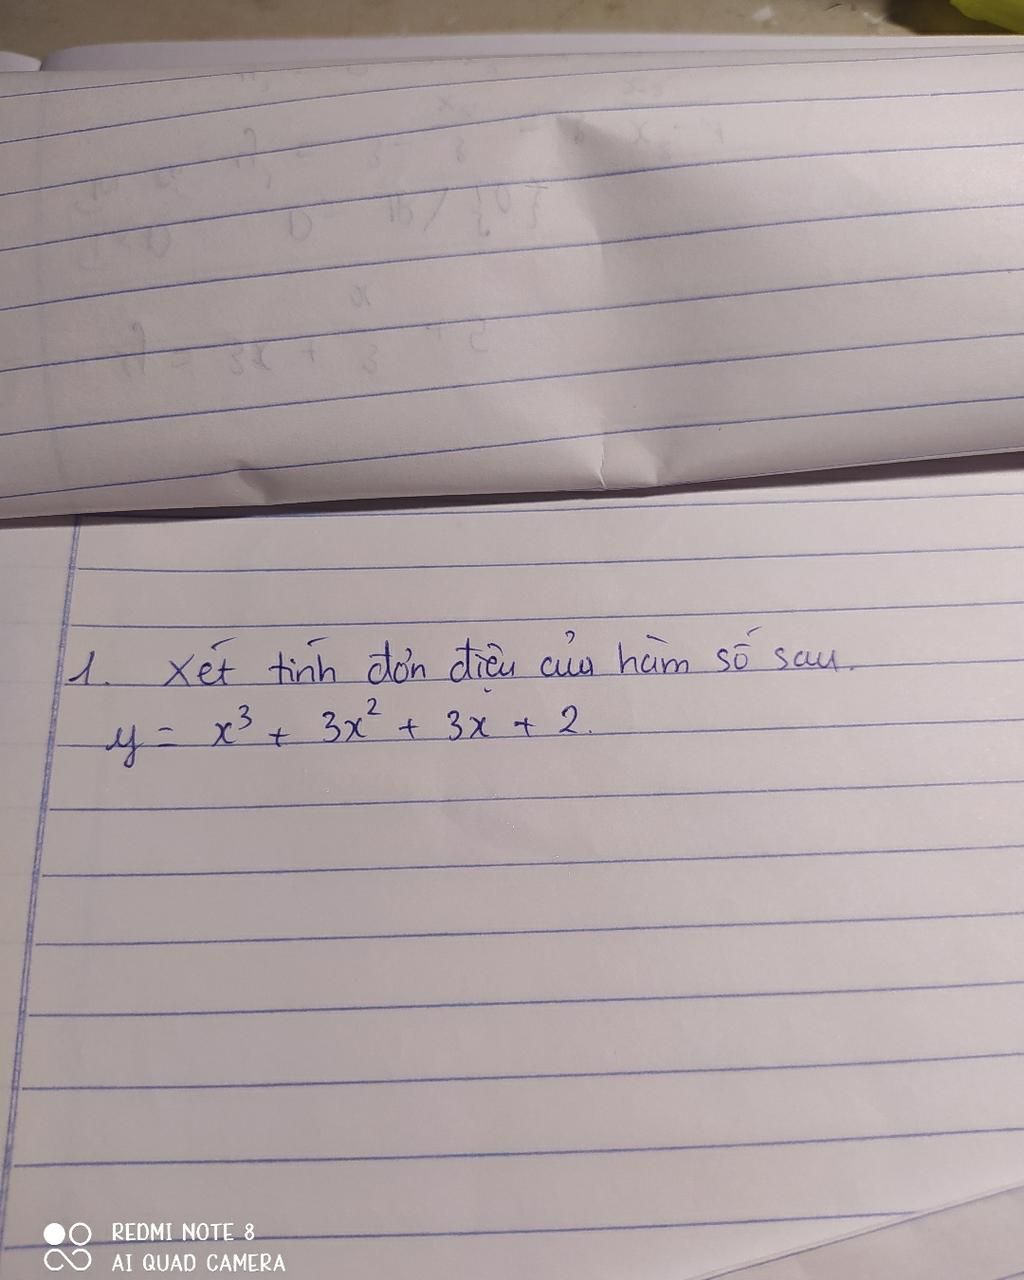 1. Xét tính đơn điệu của hàm số sau.
y = x³ + 3x² + 3x + 2.
REDMI NOTE 8
AI QUAD CAMERA